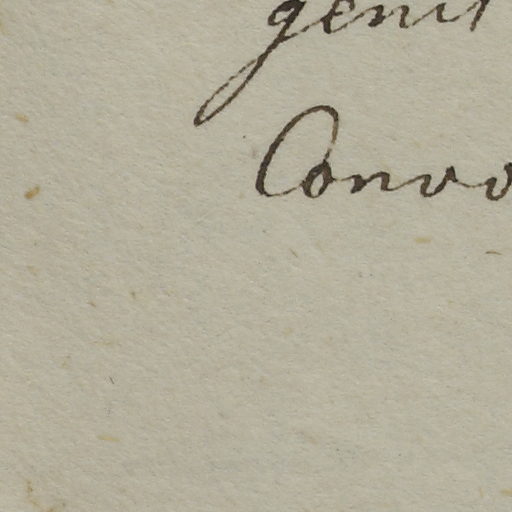 genit
Convo